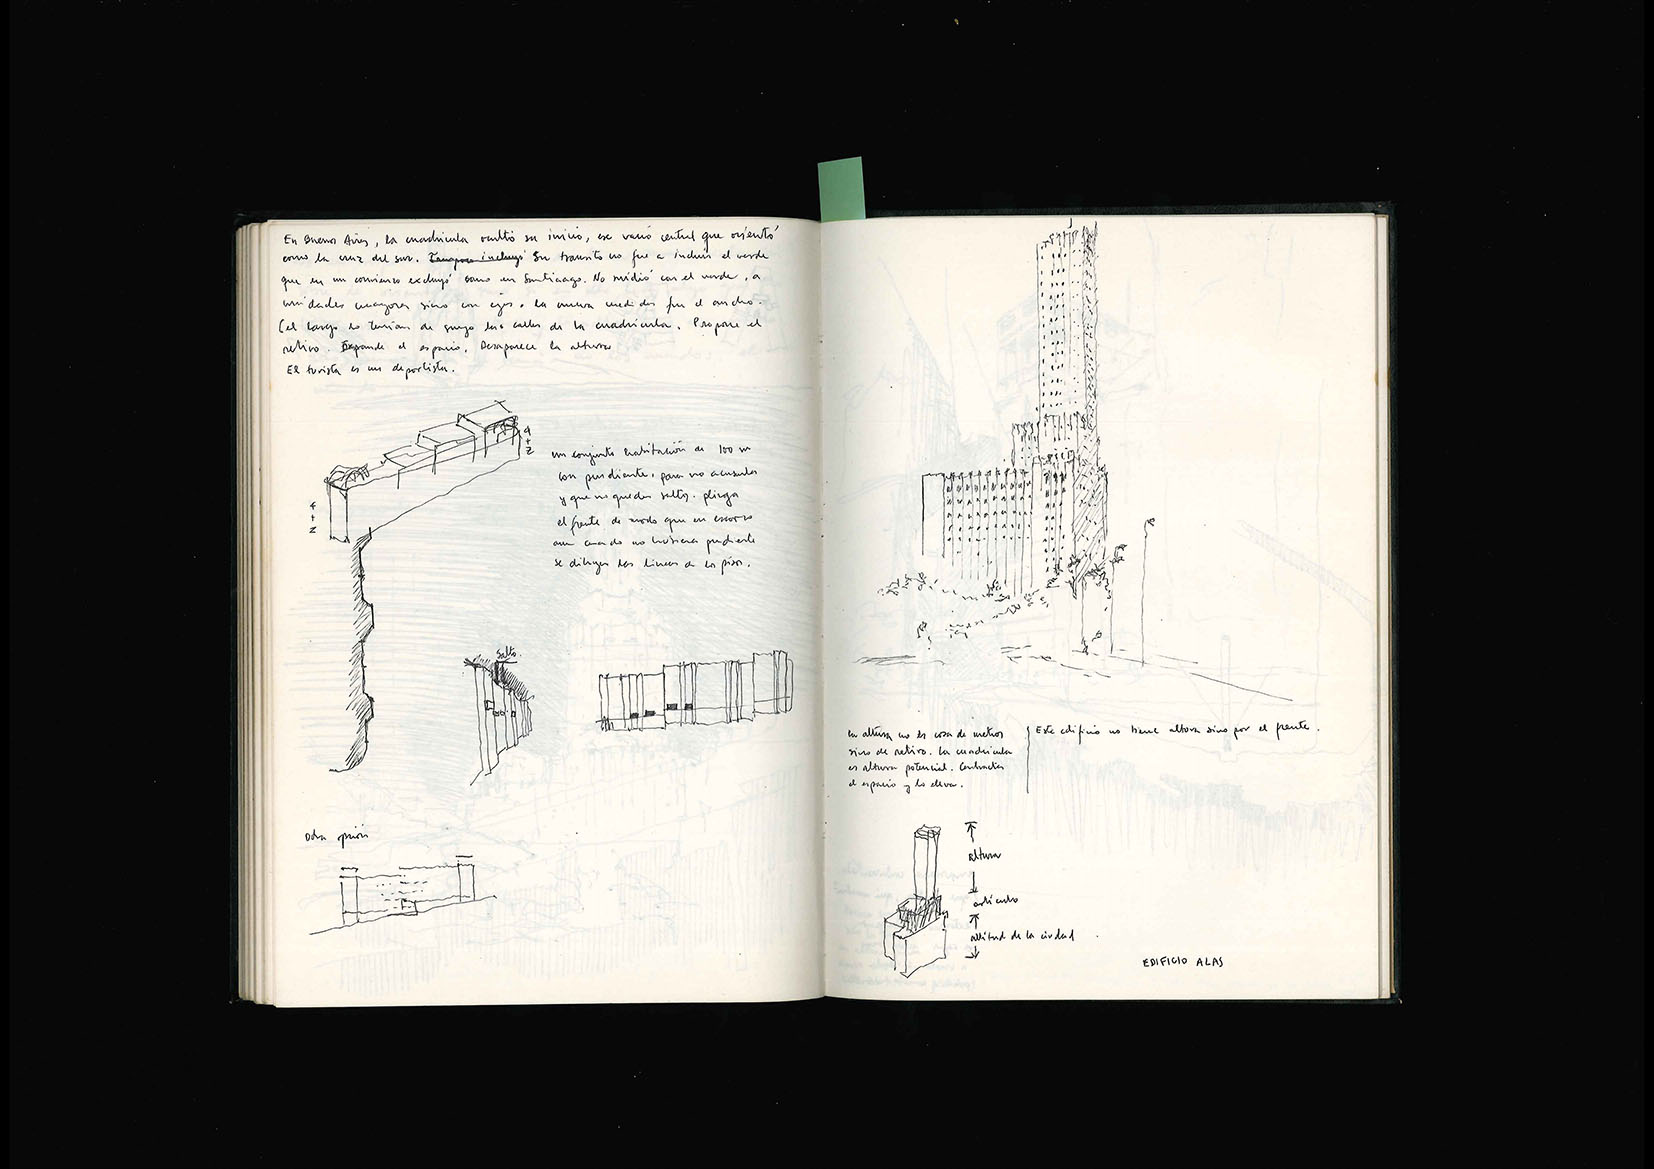 En Buenos Aires, la cuadrícula ocultó su inicio, ese vacío central que orientó
como la cruz del sur. Tampoco incluyó Su transito no fue a incluir el verde
que en un comienzo excluyó como en Santiago. No midió con el verde, a
unidades mayores sino con ejes. La nueva medida fue el ancho.
(el largo lo tenían de suyo las calles de la cuadrícula. Propone el
retiro. Expande el espacio. Desaparece la altura
El turista es un deportista.
4+Z
4+Z
un conjunto habitación de 100 m
con pendiente, para no acusarlos
y que no queden saltos. pliega
el frente de modo que en escorzo
aun cuando no hubiera pendiente
se dibujen las lineas de los pisos.
salto.
Otra opción
La altura no es cosa de metros
sino de retiro. La cuadrícula
es altura potencial. Contractar
el espacio y lo eleva.
Este edificio no tiene altura sino por el frente.
altura
artículo
altitud de la ciudad
EDIFICIO ALAS